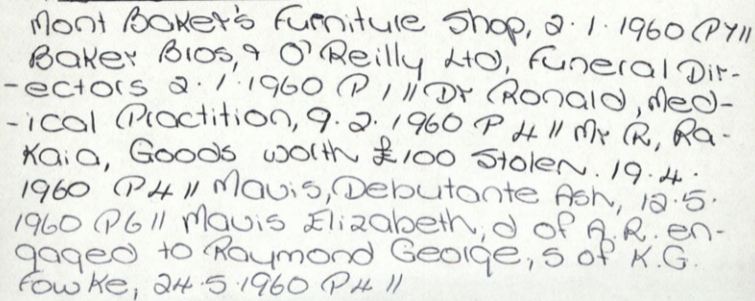 Mont Baker's Furniture Shop, 2.1.1960 P4//
Baker Bros, & O'Reilly Ltd, Funeral Dir-
-ectors 2.1.1960 P1// Dr Ronald, Med-
-ical Practition, 9.2.1960 P4// Mr R, Ra-
kaia, Goods worth £100 Stolen. 19.4.
1960 P4// Mavis, Debutante Ash, 12.5.
1960 P6// Mavis Elizabeth, d of A.R. en-
gaged to Raymond George, s of K.G.
Fowke, 24.5.1960 P4//